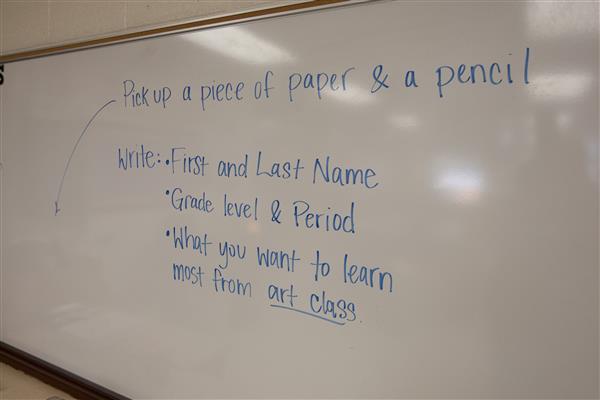 Pick up a piece of paper & a pencil
Write: • First and Last Name
• Grade level & Period
• What you want to learn
most from art class.